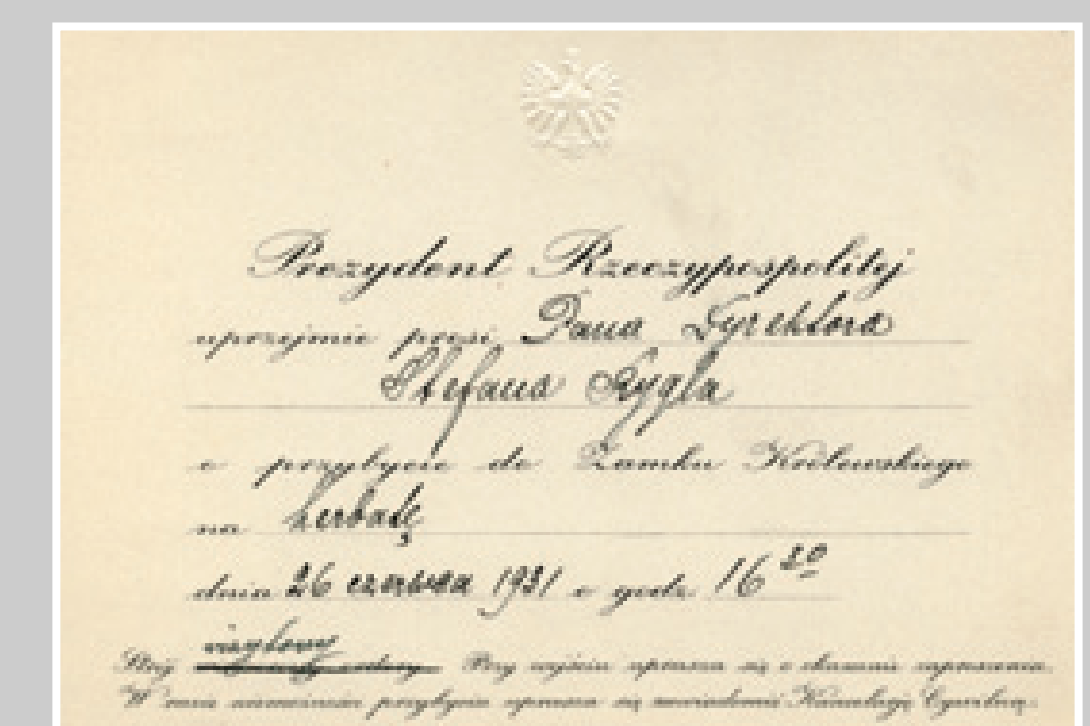 Prezydent Rzeczypospolitej
uprzejmie prosi Pana Dyrektora
Stefana
o przybycie do Zamku Królewskiego
na herbatę
dnia 26 czerwca 1931 o godz. 16
wizytowy
Strój Przy wejściu uprasza się o okazanie zaproszenia.
W razie niemożności przybycia uprasza się zawiadomić Kancelarję Cywilną.